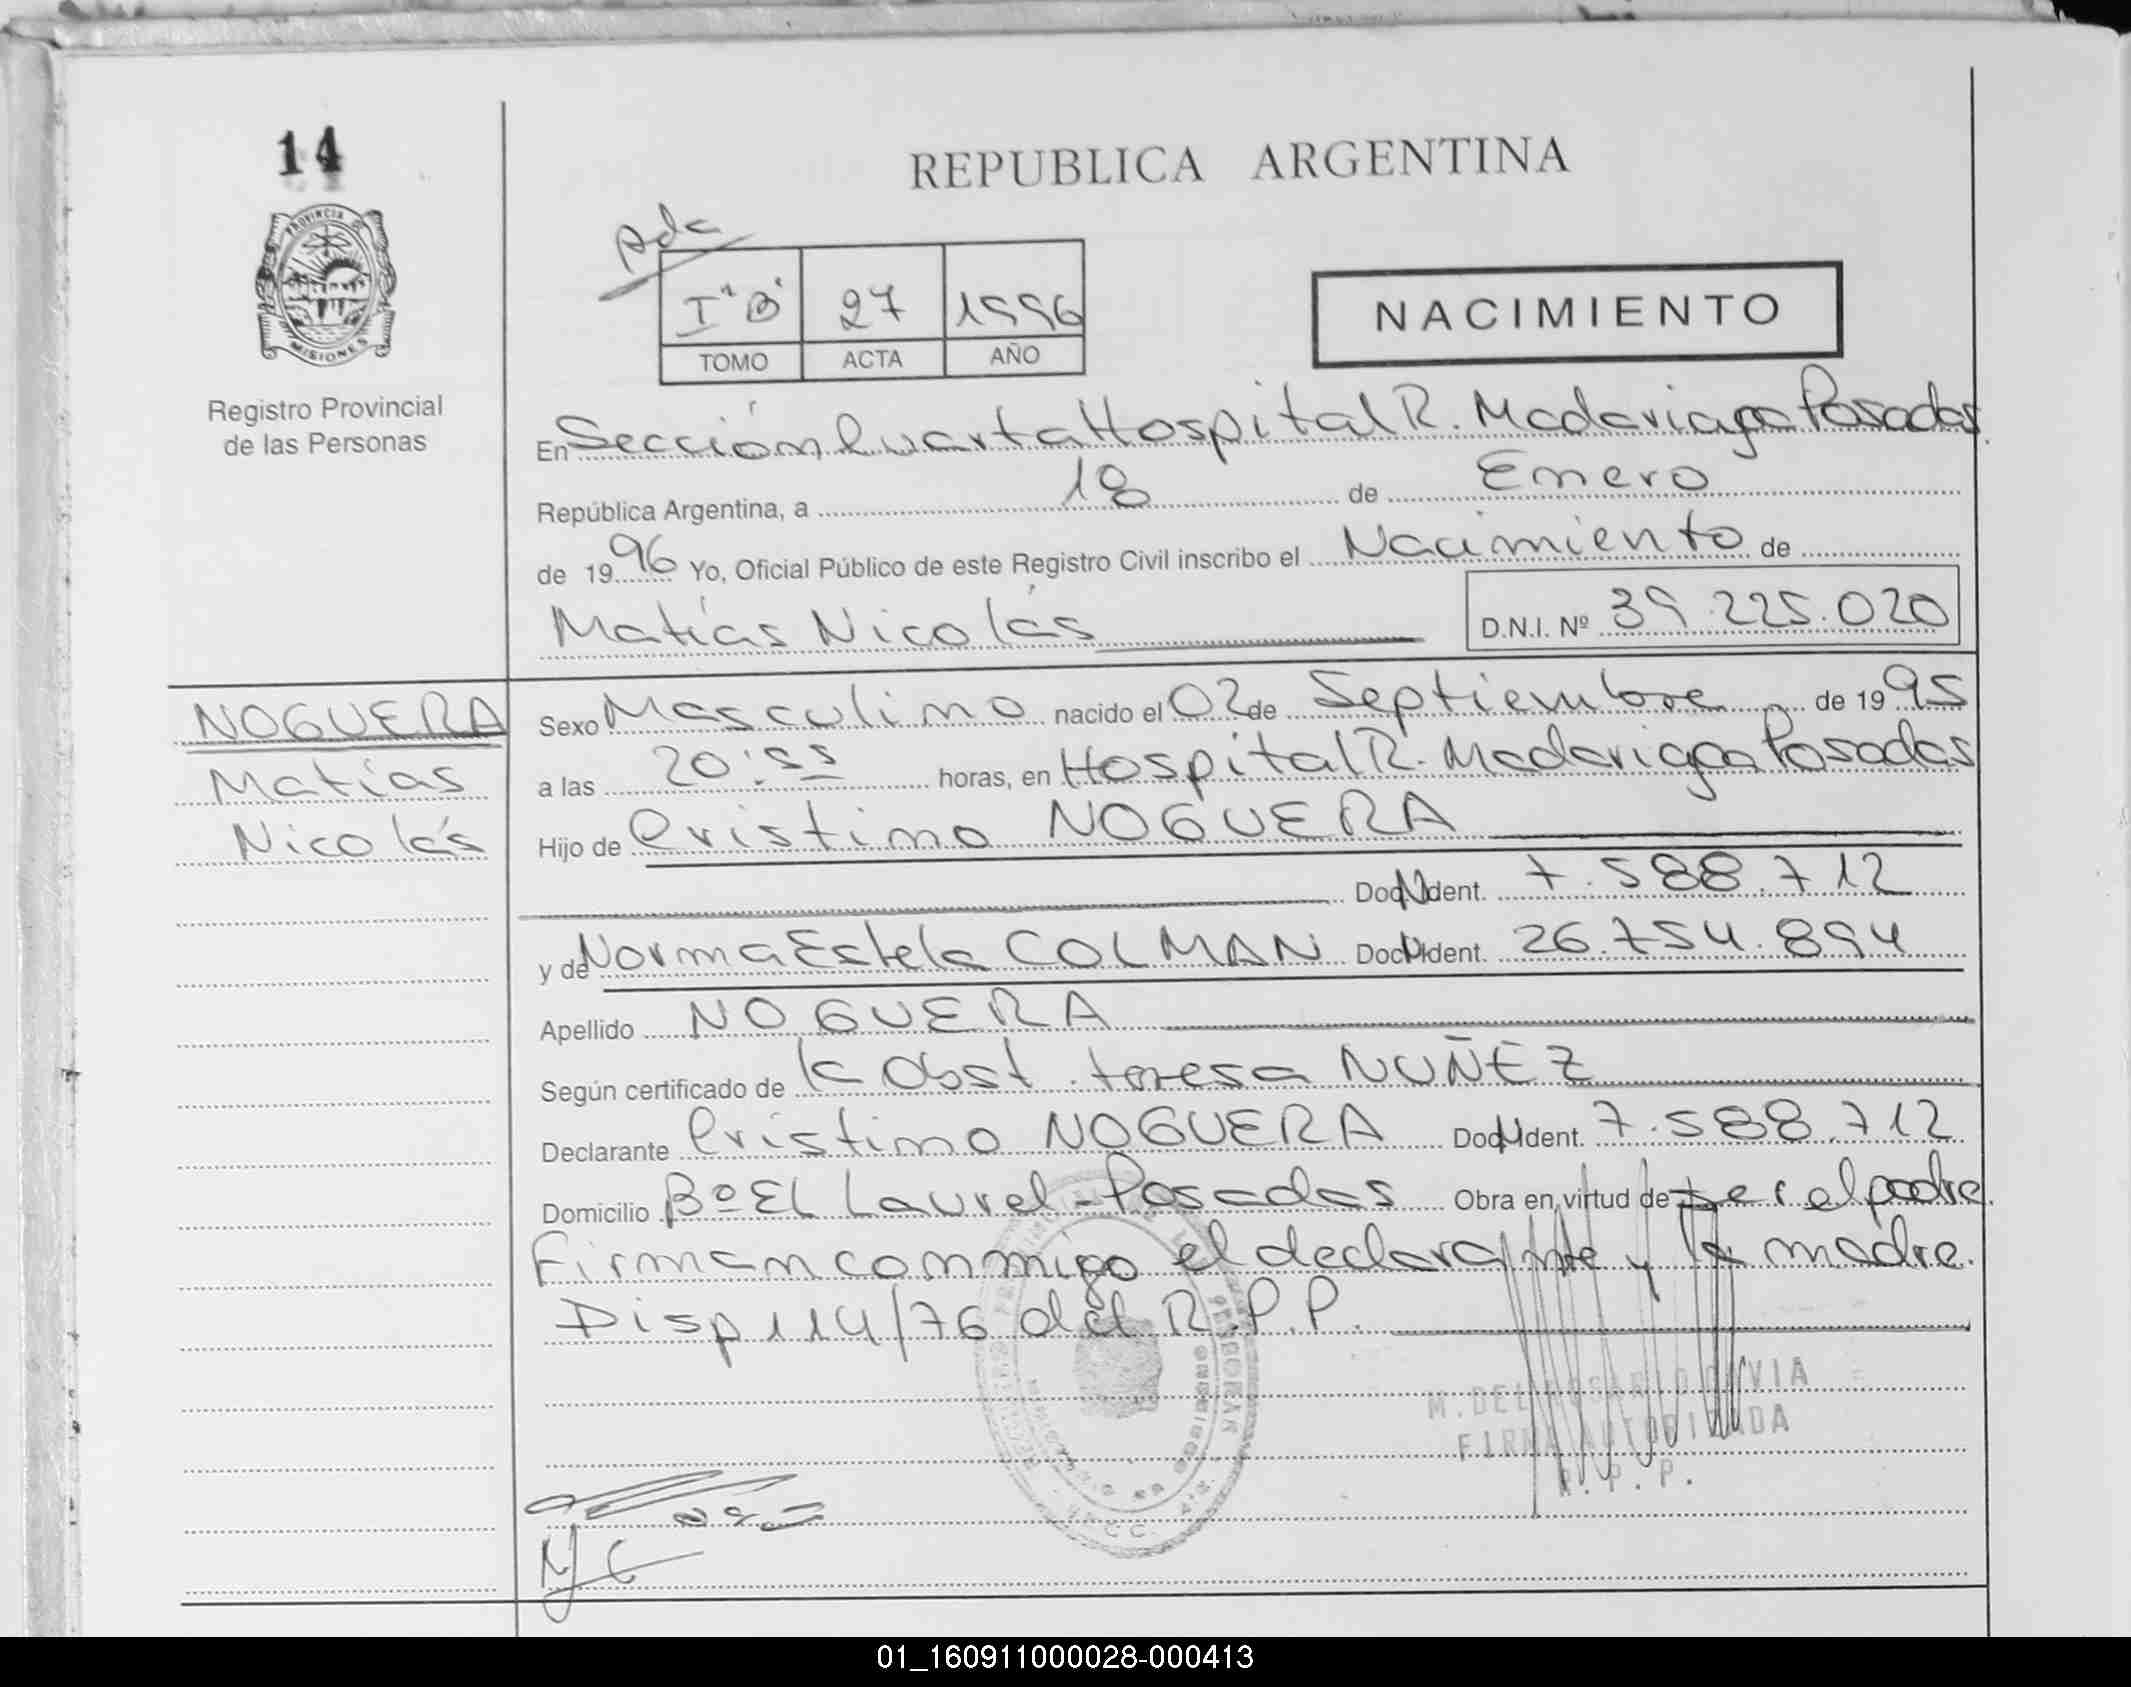 14
PROVINCIA DE
MISIONES
Registro Provincial
de las Personas
REPUBLICA ARGENTINA
pda
I"B" 27 1996
TOMO ACTA AÑO
NACIMIENTO
En Sección Cuarta Hospital R. Madariaga Posadas
República Argentina, a 18 de Enero
de 1996 Yo, Oficial Público de este Registro Civil inscribo el Nacimiento de
Matías Nicolás D.N.I. Nº 39.225.020
NOGUERA
Matías
Nicolás
Sexo Masculino nacido el 02 de Septiembre de 1995
a las 20:55 horas, en Hospital R. Madariaga Posadas
Hijo de Cristino NOGUERA
Doc. Ident. 7.588.712
y de Norma Estela COLMAN Doc. Ident. 26.754.894
Apellido NOGUERA
Según certificado de la Obst. teresa NUÑEZ
Declarante Cristino NOGUERA Doc. Ident. 7.588.712
Domicilio Bº El Laurel - Posadas Obra en virtud de ser el padre
Firman conmigo el declarante y la madre.
Disp 114/76 del R.P.P.
M. DEL ROSARIO
FIRMA AUTORIZADA
R.P.P.
01_160911000028-000413